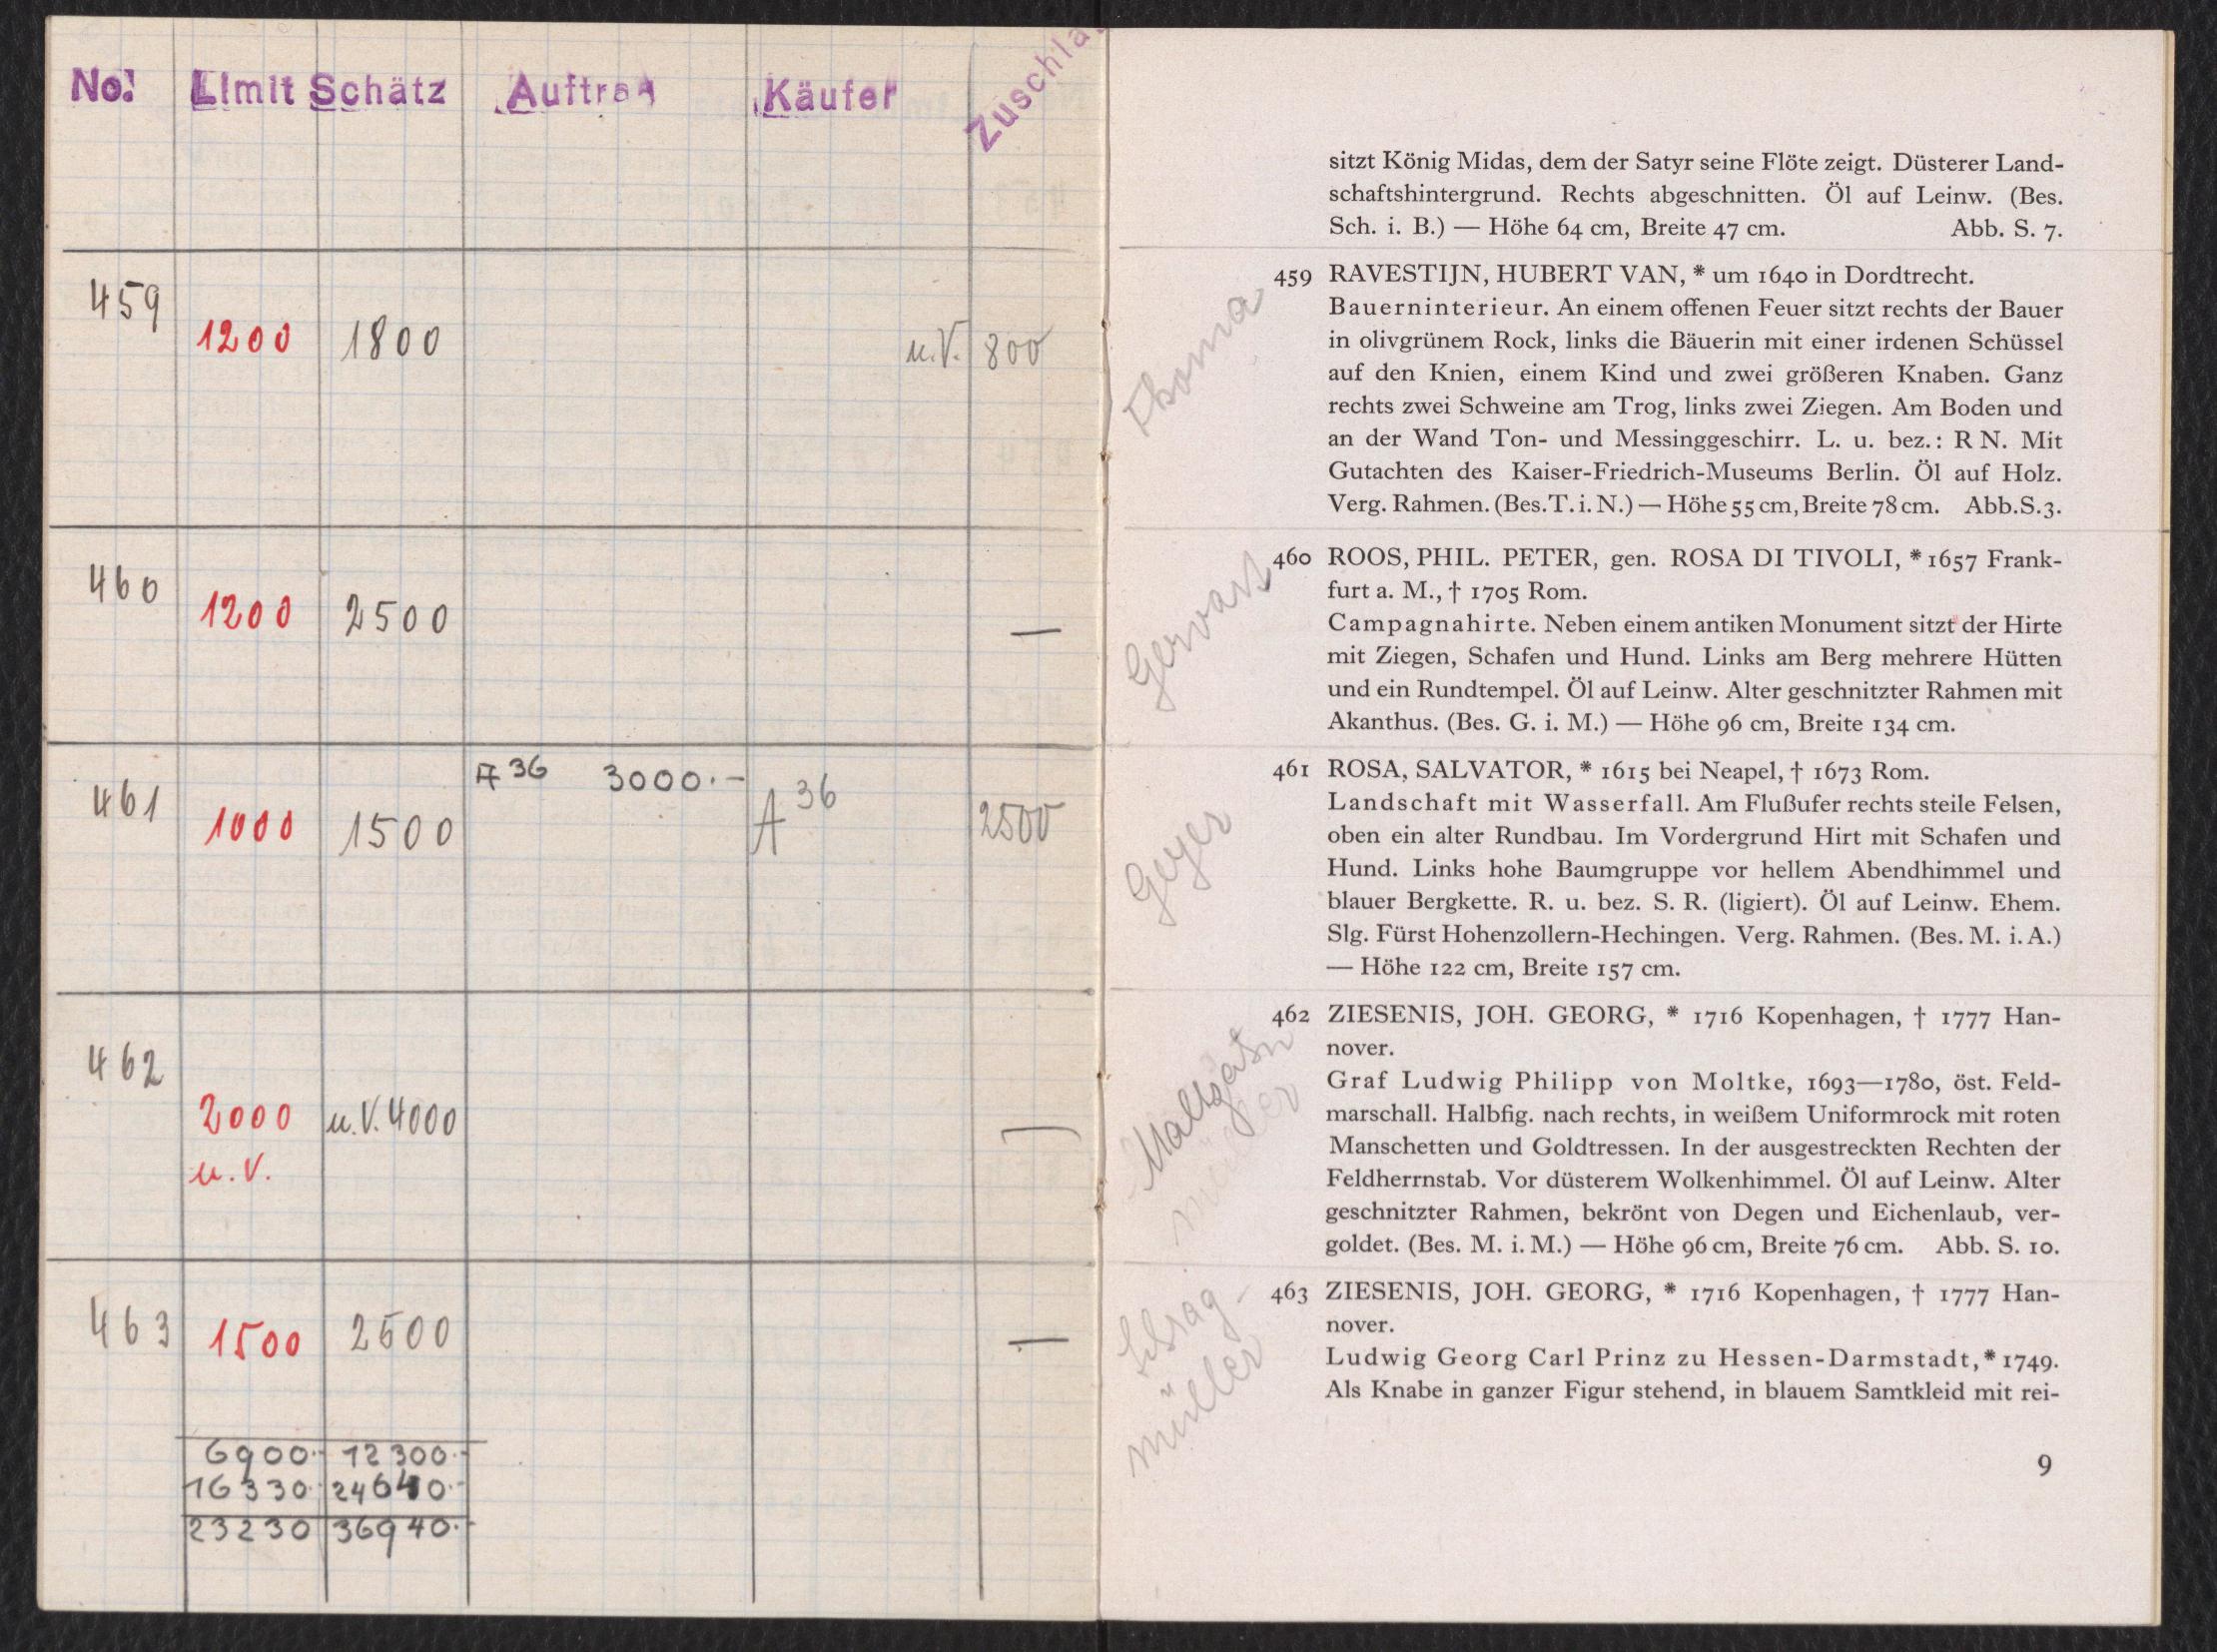 No. Limit Schätz Auftrag Käufer Zuschla
459 1200 1800 u.V. 800
460 1200 2500 —
461 1000 1500 A 36 3000.- A 36 2500
462 2000 u.V. u.V. 4000 —
463 1500 2500 —
6900.- 12300.-
16330.- 24640.-
23230 36940.-
sitzt König Midas, dem der Satyr seine Flöte zeigt. Düsterer Land-
schaftshintergrund. Rechts abgeschnitten. Öl auf Leinw. (Bes.
Sch. i. B.) — Höhe 64 cm, Breite 47 cm. Abb. S. 7.
Thoma
459 RAVESTIJN, HUBERT VAN, * um 1640 in Dordtrecht.
Bauerninterieur. An einem offenen Feuer sitzt rechts der Bauer
in olivgrünem Rock, links die Bäuerin mit einer irdenen Schüssel
auf den Knien, einem Kind und zwei größeren Knaben. Ganz
rechts zwei Schweine am Trog, links zwei Ziegen. Am Boden und
an der Wand Ton- und Messinggeschirr. L. u. bez.: R N. Mit
Gutachten des Kaiser-Friedrich-Museums Berlin. Öl auf Holz.
Verg. Rahmen. (Bes. T. i. N.) — Höhe 55 cm, Breite 78 cm. Abb. S. 3.
Gervart
460 ROOS, PHIL. PETER, gen. ROSA DI TIVOLI, * 1657 Frank-
furt a. M., † 1705 Rom.
Campagnahirte. Neben einem antiken Monument sitzt der Hirte
mit Ziegen, Schafen und Hund. Links am Berg mehrere Hütten
und ein Rundtempel. Öl auf Leinw. Alter geschnitzter Rahmen mit
Akanthus. (Bes. G. i. M.) — Höhe 96 cm, Breite 134 cm.
Geyer
461 ROSA, SALVATOR, * 1615 bei Neapel, † 1673 Rom.
Landschaft mit Wasserfall. Am Flußufer rechts steile Felsen,
oben ein alter Rundbau. Im Vordergrund Hirt mit Schafen und
Hund. Links hohe Baumgruppe vor hellem Abendhimmel und
blauer Bergkette. R. u. bez. S. R. (ligiert). Öl auf Leinw. Ehem.
Slg. Fürst Hohenzollern-Hechingen. Verg. Rahmen. (Bes. M. i. A.)
— Höhe 122 cm, Breite 157 cm.
462 ZIESENIS, JOH. GEORG, * 1716 Kopenhagen, † 1777 Han-
nover.
Graf Ludwig Philipp von Moltke, 1693—1780, öst. Feld-
marschall. Halbfig. nach rechts, in weißem Uniformrock mit roten
Manschetten und Goldtressen. In der ausgestreckten Rechten der
Feldherrnstab. Vor düsterem Wolkenhimmel. Öl auf Leinw. Alter
geschnitzter Rahmen, bekrönt von Degen und Eichenlaub, ver-
goldet. (Bes. M. i. M.) — Höhe 96 cm, Breite 76 cm. Abb. S. 10.
müller
463 ZIESENIS, JOH. GEORG, * 1716 Kopenhagen, † 1777 Han-
nover.
Ludwig Georg Carl Prinz zu Hessen-Darmstadt, * 1749.
Als Knabe in ganzer Figur stehend, in blauem Samtkleid mit rei-
9